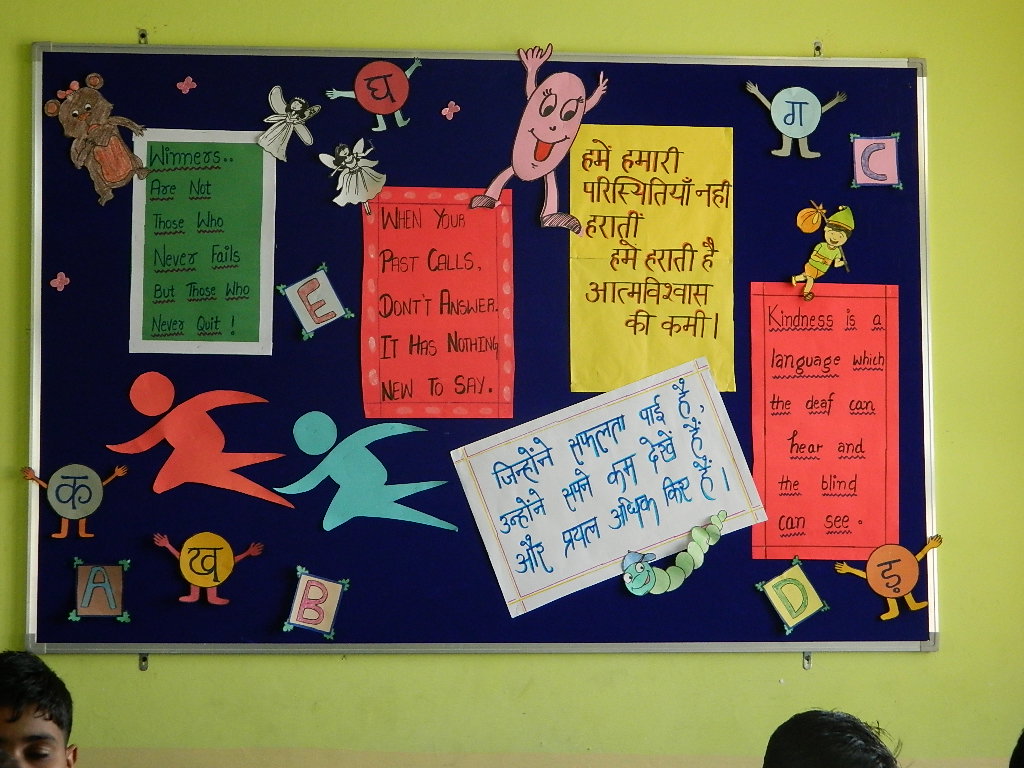 Winners..
Are Not
Those Who
Never Fails
But Those Who
Never Quit !
घ
WHEN YOUR
PAST CALLS,
DONT'T ANSWER.
IT HAS NOTHING
NEW TO SAY.
हमें हमारी
परिस्थितियाँ नही
हरातीं
हमे हराती है
आत्मविश्वास
की कमी।
ग
C
Kindness is a
language which
the deaf can
hear and
the blind
can see.
E
जिन्होंने सफलता पाई है,
उन्होंने सपने कम देखें हैं
और प्रयत्न अधिक किए हैं।
क
ख
A
B
D
ड़